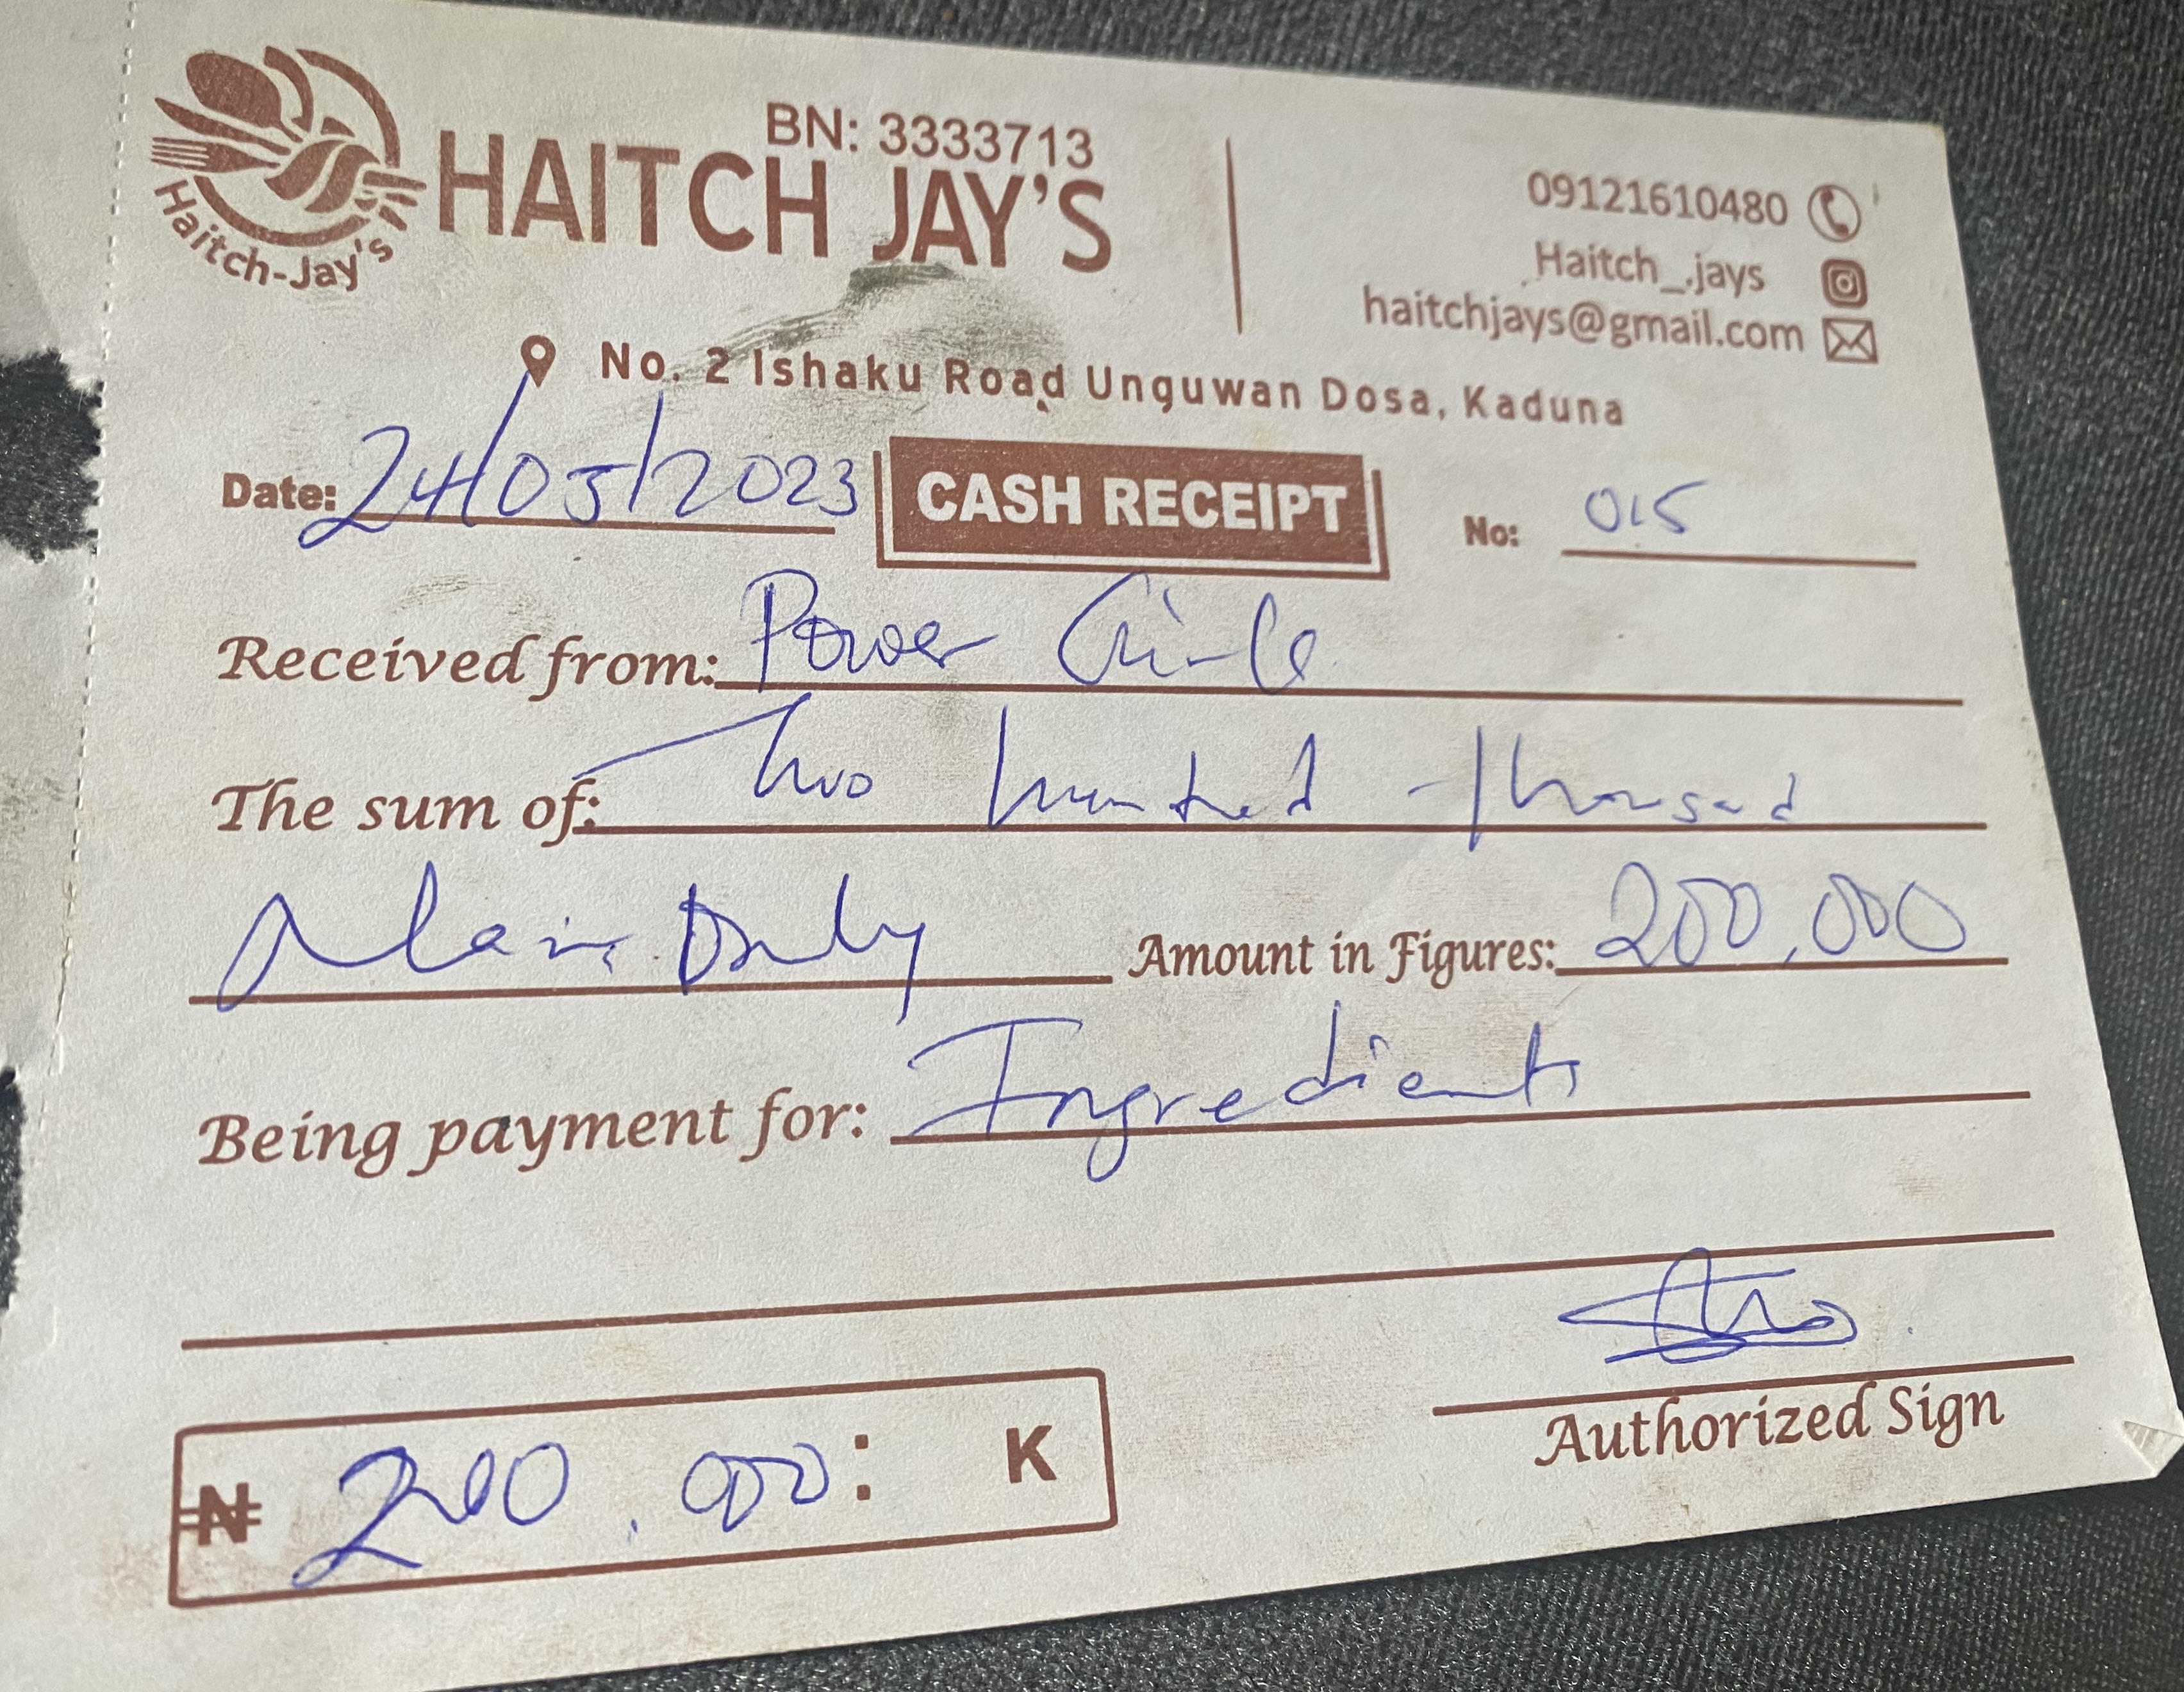 BN: 3333713
HAITCH JAY'S
Haitch-Jay's
09121610480
Haitch_.jays
haitchjays@gmail.com
No. 2 Ishaku Road Unguwan Dosa, Kaduna
Date: 24/05/2023 CASH RECEIPT No: 015
Received from: Power Circle
The sum of: Two hundred thousand
Naira Only Amount in Figures: 200,000
Being payment for: Ingredients
Authorized Sign
₦ 200,000: K